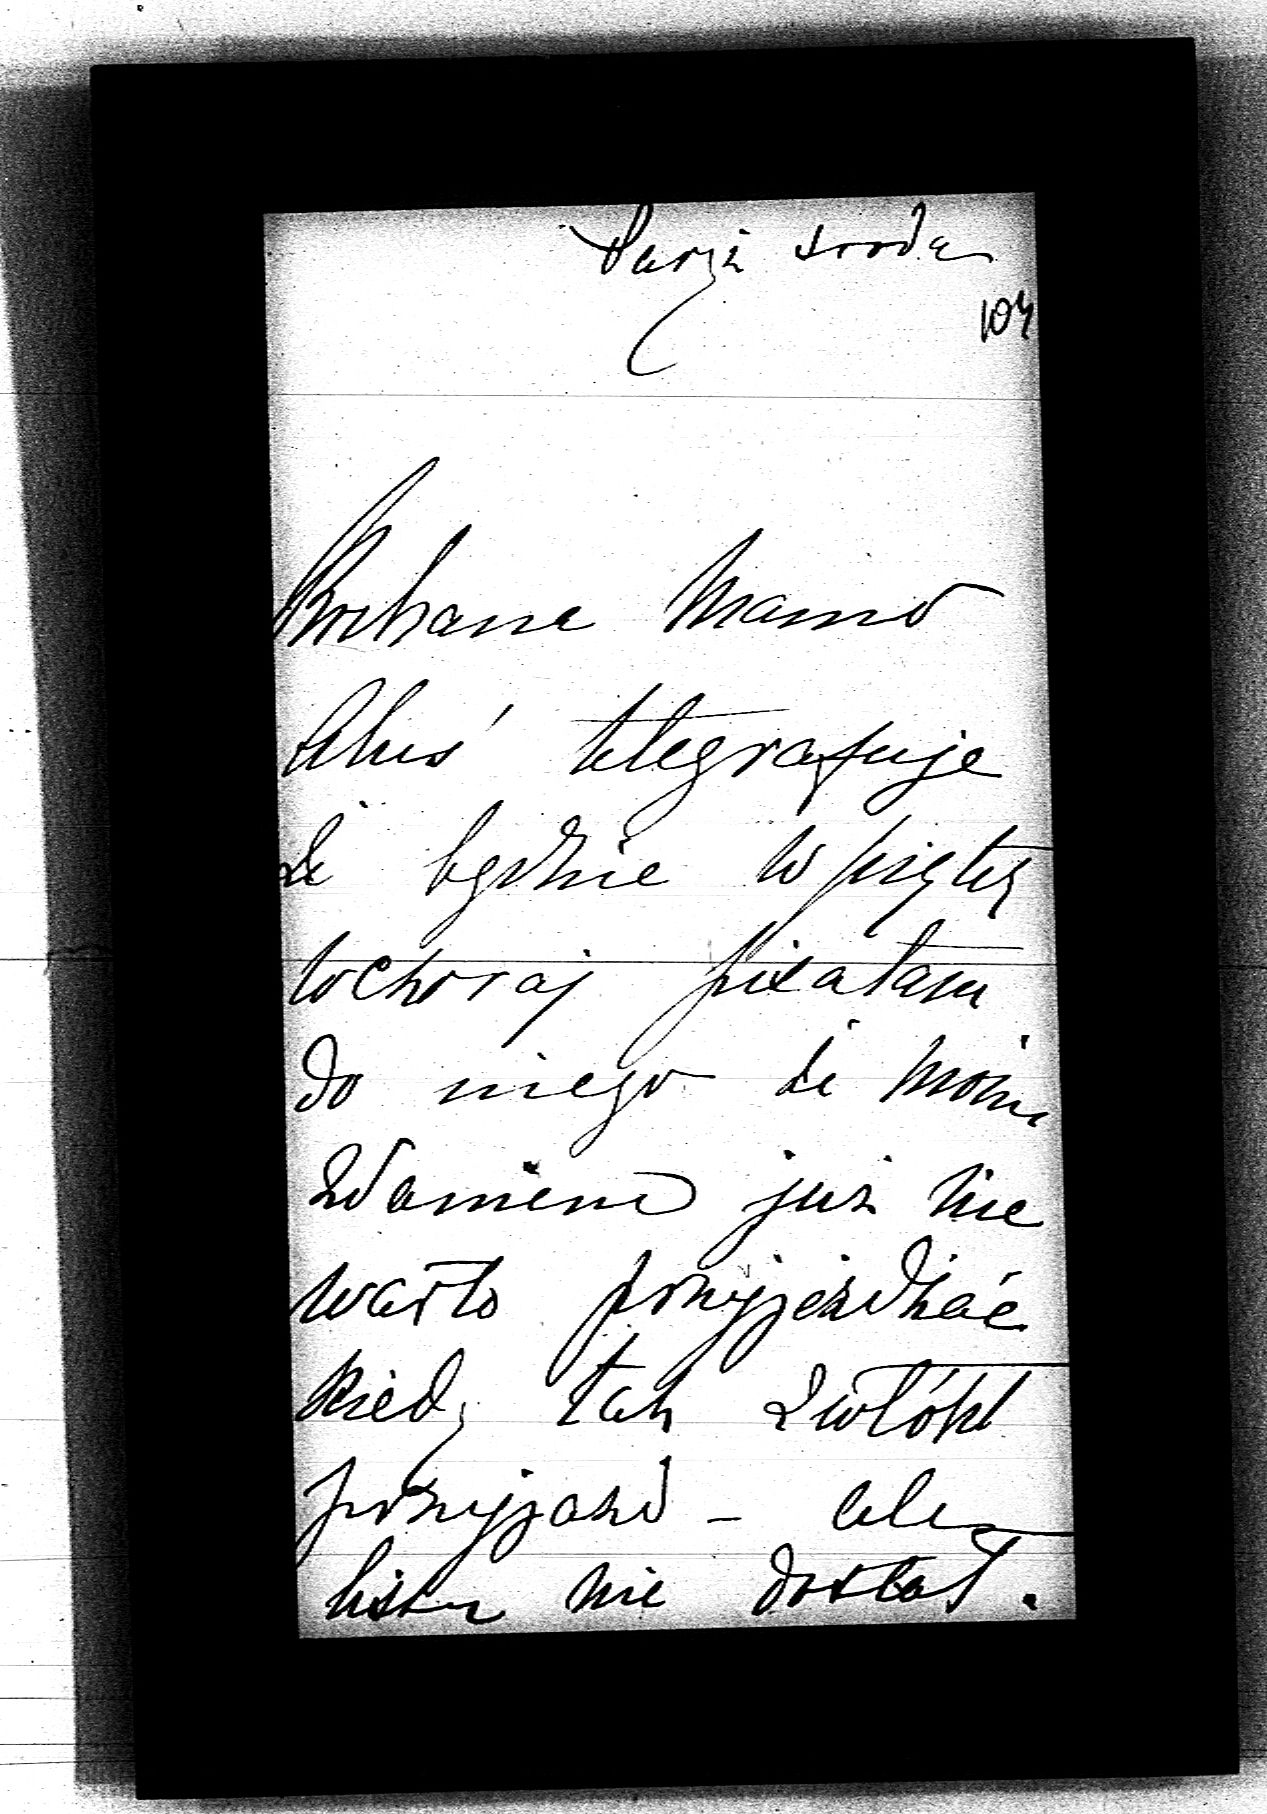 Paryż środa
104
Kochana Mamo
Aluś telegrafuje
że będzie w piątek
wczoraj pisałam
do niego że moim
zdaniem już nie
warto przyjeżdżać
kiedy tak zwlókł
przyjazd – ale
listu nie dostał.